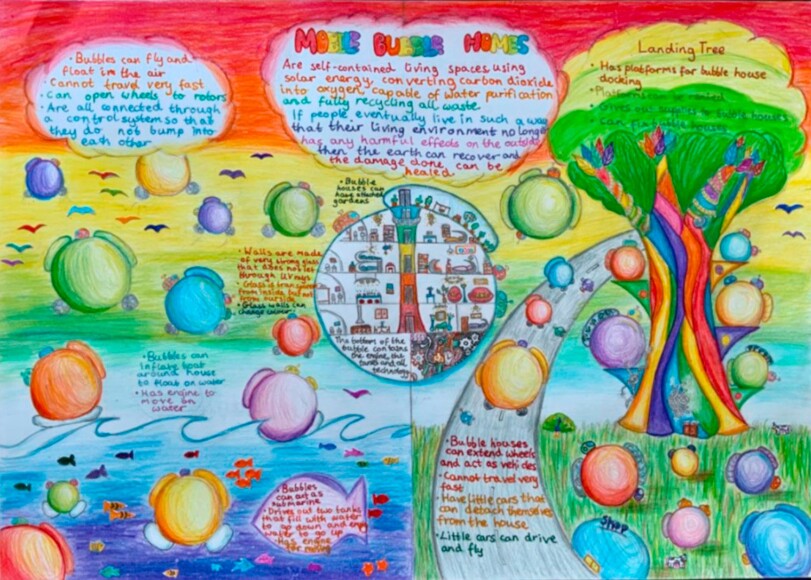 MOBILE BUBBLE HOMES
Are self-contained living spaces using
solar energy, converting carbon dioxide
into oxygen, capable of water purification
and fully recycling all waste.
If people eventually live in such a way
that their living environment no longer
has any harmful effects on the outside
then the earth can recover and
the damage done can be
healed.
• Bubbles can fly and
float in the air
• Cannot travel very fast
• Can open wheels to rotors
• Are all connected through
a control system so that
they do not bump into
each other
Landing Tree
• Has platforms for bubble house
docking
• Platforms
• Gives out supplies to bubble houses
• Can houses
• Bubble
houses can
have attached
gardens
• Walls are made
of very strong glass
that does not let
through UV rays
• Glass is transparent
from inside but not
from outside
• Glass walls can
change colour
The bottom of the
bubble contains
the engine, the
tanks and all
technology
• Bubbles can
inflate boat
around house
to float on water
• Has engine to
move on
water
• Bubbles
can act as
submarine
• Drives out two tanks
that fill with water
to go down and empty
water to go up
• Has engine
for moving
• Bubble houses
can extend wheels
and act as vehicles
• Cannot travel very
fast
• Have little cars that
can detach themselves
from the house
• Little cars can drive
and fly
Shop